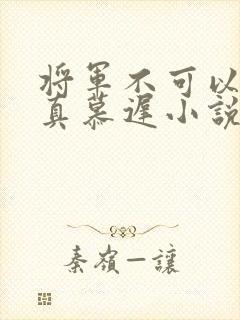 将軍不可以
真慕遲小說
秦嶺一讓